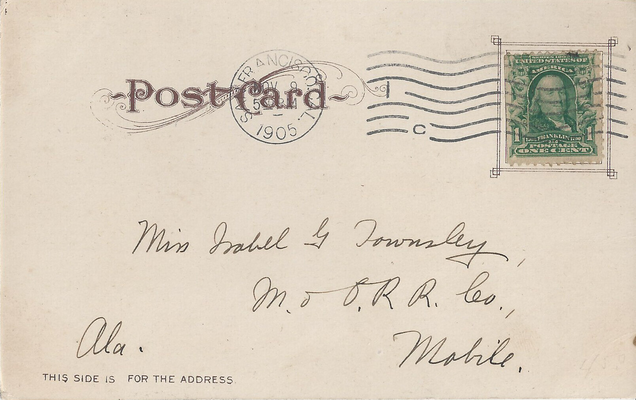 Post Card
SAN FRANCISCO, CAL.
NOV 8
1905
1
C
UNITED STATES OF
AMERICA
FRANKLIN
1 POSTAGE 1
ONE CENT
Miss Isabel G Townsley,
M. & O. R R. Co.,
Mobile,
Ala.
THIS SIDE IS FOR THE ADDRESS.